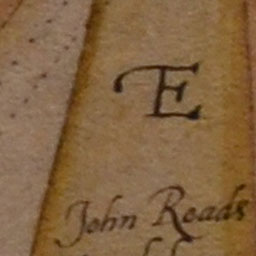 E
John Reads